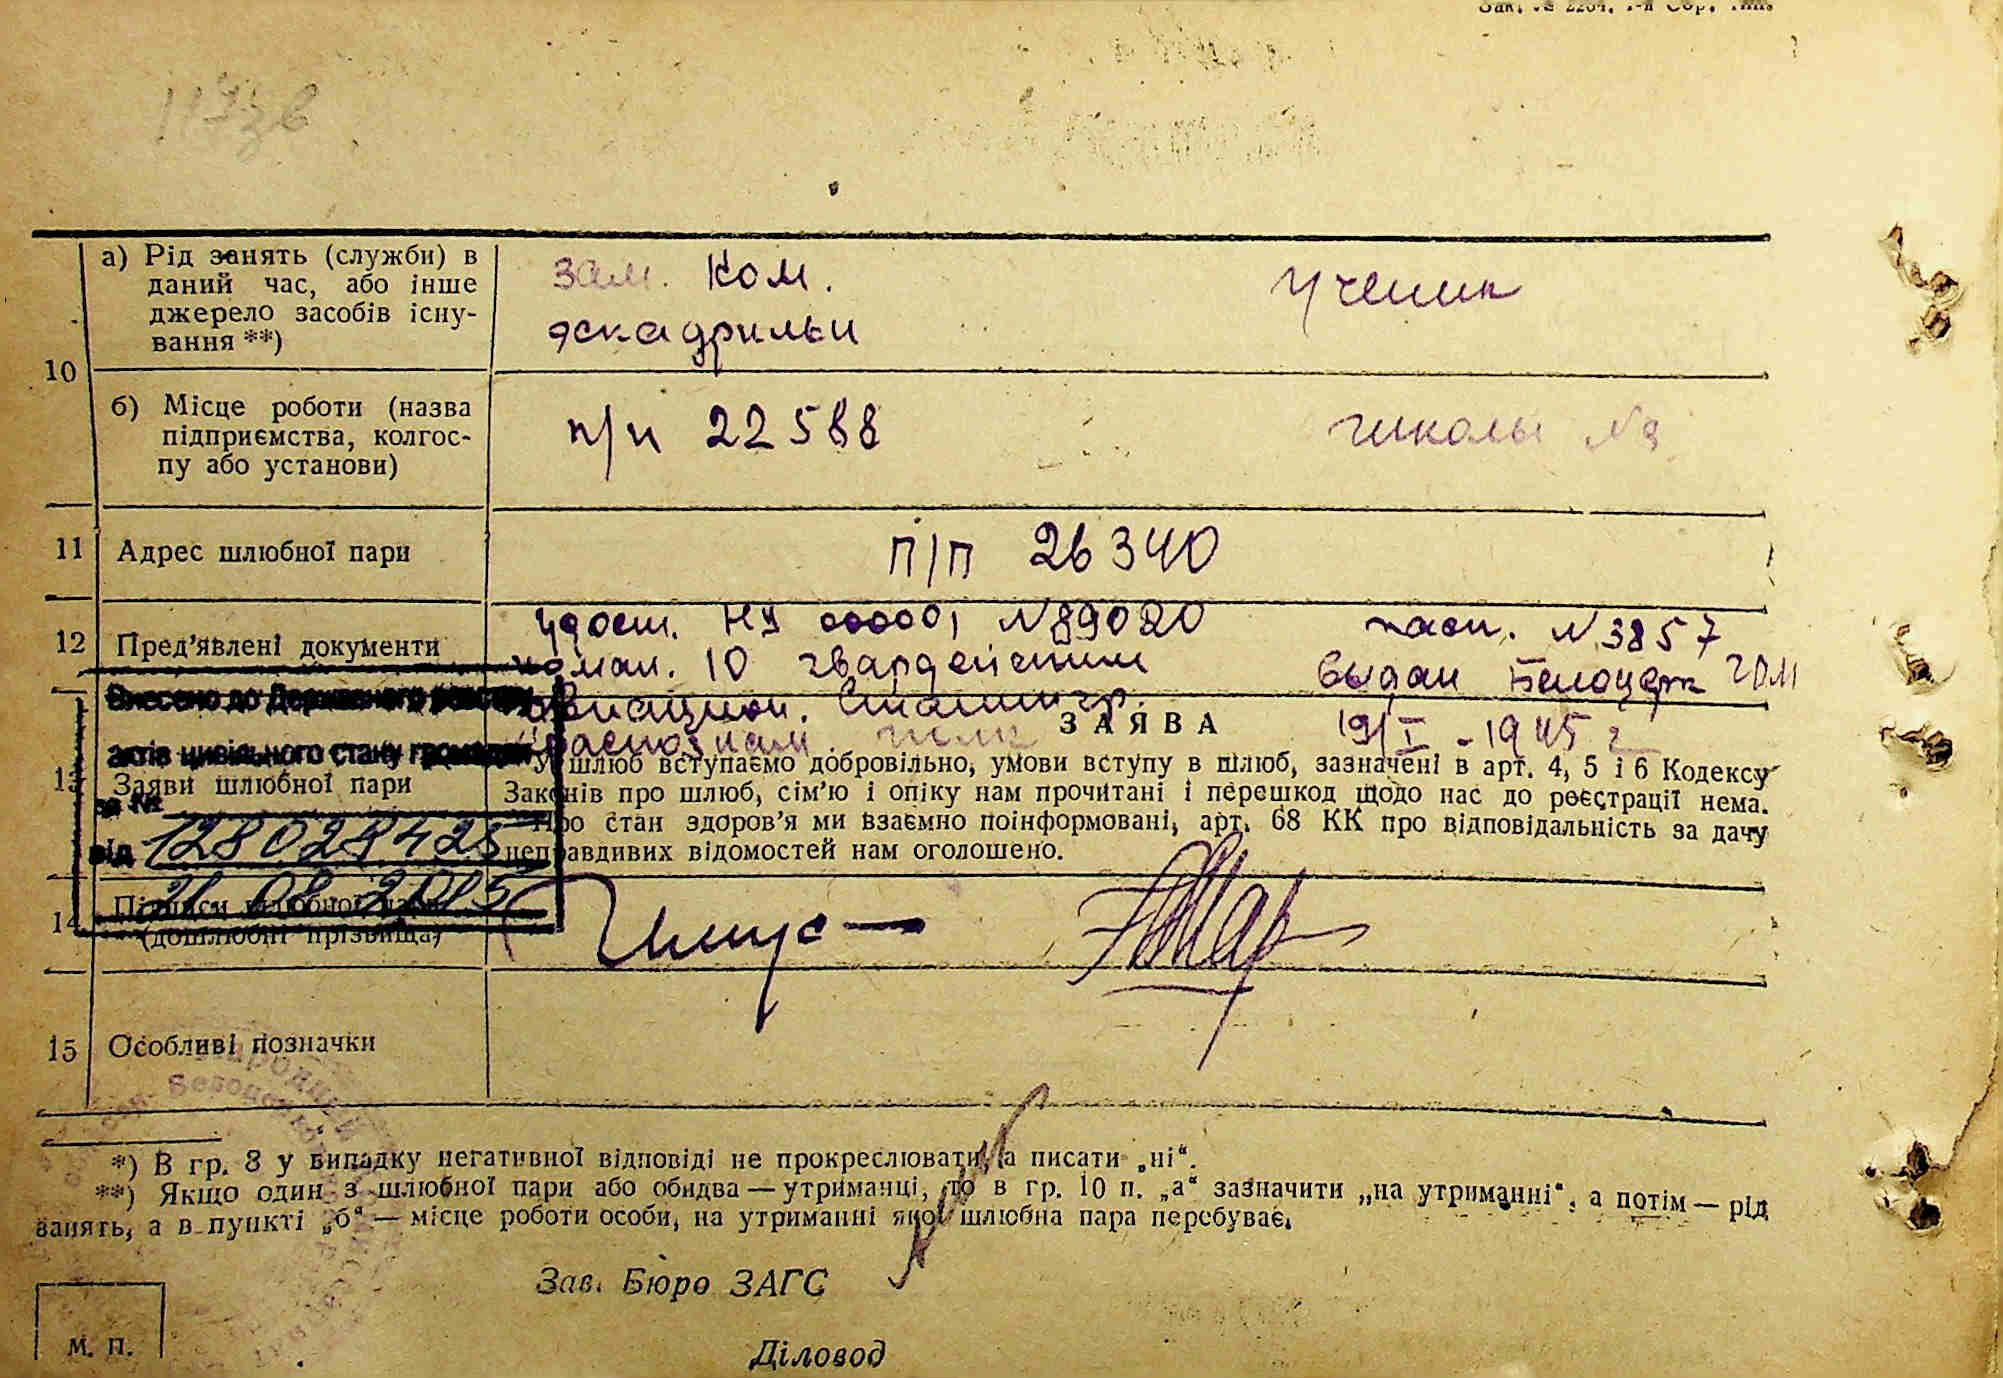 а) Рід занять (служби) в
даний час, або інше
джерело засобів існу-
вання **)
зам. ком.
эскадрильи
ученик
10
б) Місце роботи (назва
підприємства, колгос-
пу або установи)
п/п 22588
школы №
11
Адрес шлюбної пари
П/П 26340
12
Пред'явлені документи
удост. НУ 000001 №89020
коман. 10 гвардейским
авиацион. Сталингр.
Краснознам. полк
пасп. №3857
выдан Белоцерк ГОМ
19/I - 1945 г
Внесено до Державного реєстру
актів цивільного стану громадян
за №
128028425
від
21.08.2015
13
Заяви шлюбної пари
ЗАЯВА
У шлюб вступаємо добровільно, умови вступу в шлюб, зазначені в арт. 4, 5 і 6 Кодексу
Законів про шлюб, сім'ю і опіку нам прочитані і перешкод щодо нас до реєстрації нема.
Про стан здоров'я ми взаємно поінформовані, арт. 68 КК про відповідальність за дачу
неправдивих відомостей нам оголошено.
14
Підписи шлюбної пари
(дошлюбні прізвища)
15
Особливі позначки
*) В гр. 8 у випадку негативної відповіді не прокреслювати, а писати „ні“.
**) Якщо один з шлюбної пари або обидва — утриманці, то в гр. 10 п. „а“ зазначити „на утриманні“, а потім — рід
занять, а в пункті „б“ — місце роботи особи, на утриманні якої шлюбна пара перебуває.
Зав. Бюро ЗАГС
М. П.
Діловод